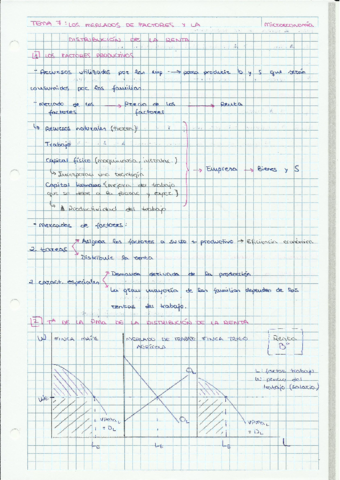 TEMA 7: LOS MERCADOS DE FACTORES Y LA
Microeconomía
DISTRIBUCIÓN DE LA RENTA
1 LOS FACTORES PRODUCTIVOS
- Recursos utilizados por las emp → para producir b y S que serán
consumidos por las familias.
- Mercado de los factores → Precio de los factores → Renta
↳ Recursos naturales (tierra)
Trabajo
Capital físico (maquinaria, )
↳ Incorpora una tecnología
Capital humano (mejora del trabajo
que se debe a la formac y exper.)
↳ Productividad del trabajo
→ Empresa → Bienes y S
- Mercados de factores:
2 tareas
Asignar los factores a su uso + productivo → Eficiencia económica
Distribuir la renta
2 caract. especiales
Demanda derivada de la producción
La gran mayoría de las familias dependen de las
rentas de trabajo.
2 Tª DE LA PMG DE LA DISTRIBUCIÓN DE LA RENTA
W FINCA MAÍZ
MERCADO DE TRABAJO AGRÍCOLA
FINCA TRIGO
Renta
Bº
L: factor trabajo
W: precio del
trabajo (salario)
OL
DL
VPMGL
= DL
VPMGL
= DL
L